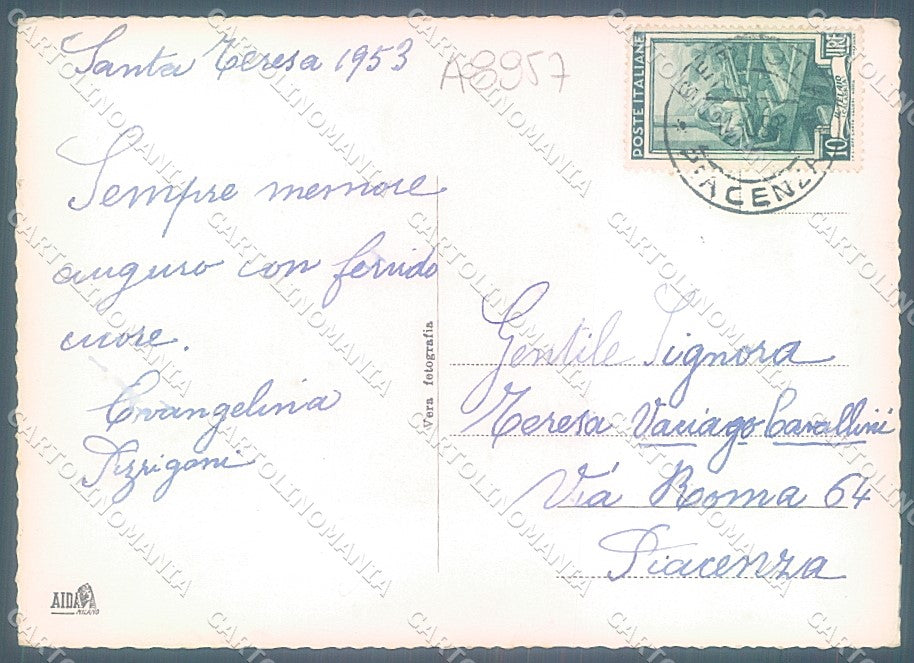 Santa Teresa 1953
A9957
Sempre memore
auguro con fervido
cuore.
Evangelina
Pizzigoni
Vera fotografia
AIDA
MILANO
POSTE ITALIANE
LIRE
10
PIACENZA
Gentile Signora
Teresa Cavallini
Via Roma 64
Piacenza
CARTOLINOMANIA